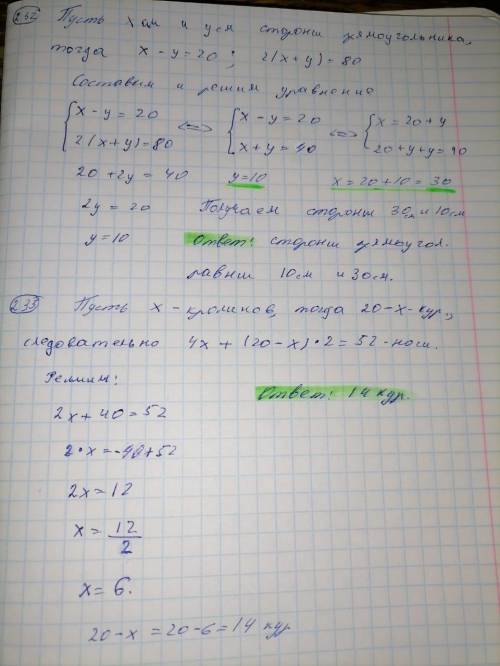 232 Пусть x см и y см стороны прямоугольника,
тогда x - y = 20 ; 2(x + y) = 80
Составим и решим уравнение
{ x - y = 20 <=> { x - y = 20 <=> { x = 20 + y
2(x + y) = 80 x + y = 40 20 + y + y = 40
20 + 2y = 40 y = 10 x = 20 + 10 = 30
2y = 20 Получаем стороны 30см и 10см
y = 10 Ответ: стороны прямоугол.
равны 10см и 30см.
235 Пусть x - кроликов, тогда 20 - x - кур,
следовательно 4x + (20 - x) • 2 = 52 - ног.
Решим:
2x + 40 = 52 Ответ: 14 кур.
2 • x = -40 + 52
2x = 12
x = 12/2
x = 6.
20 - x = 20 - 6 = 14 кур